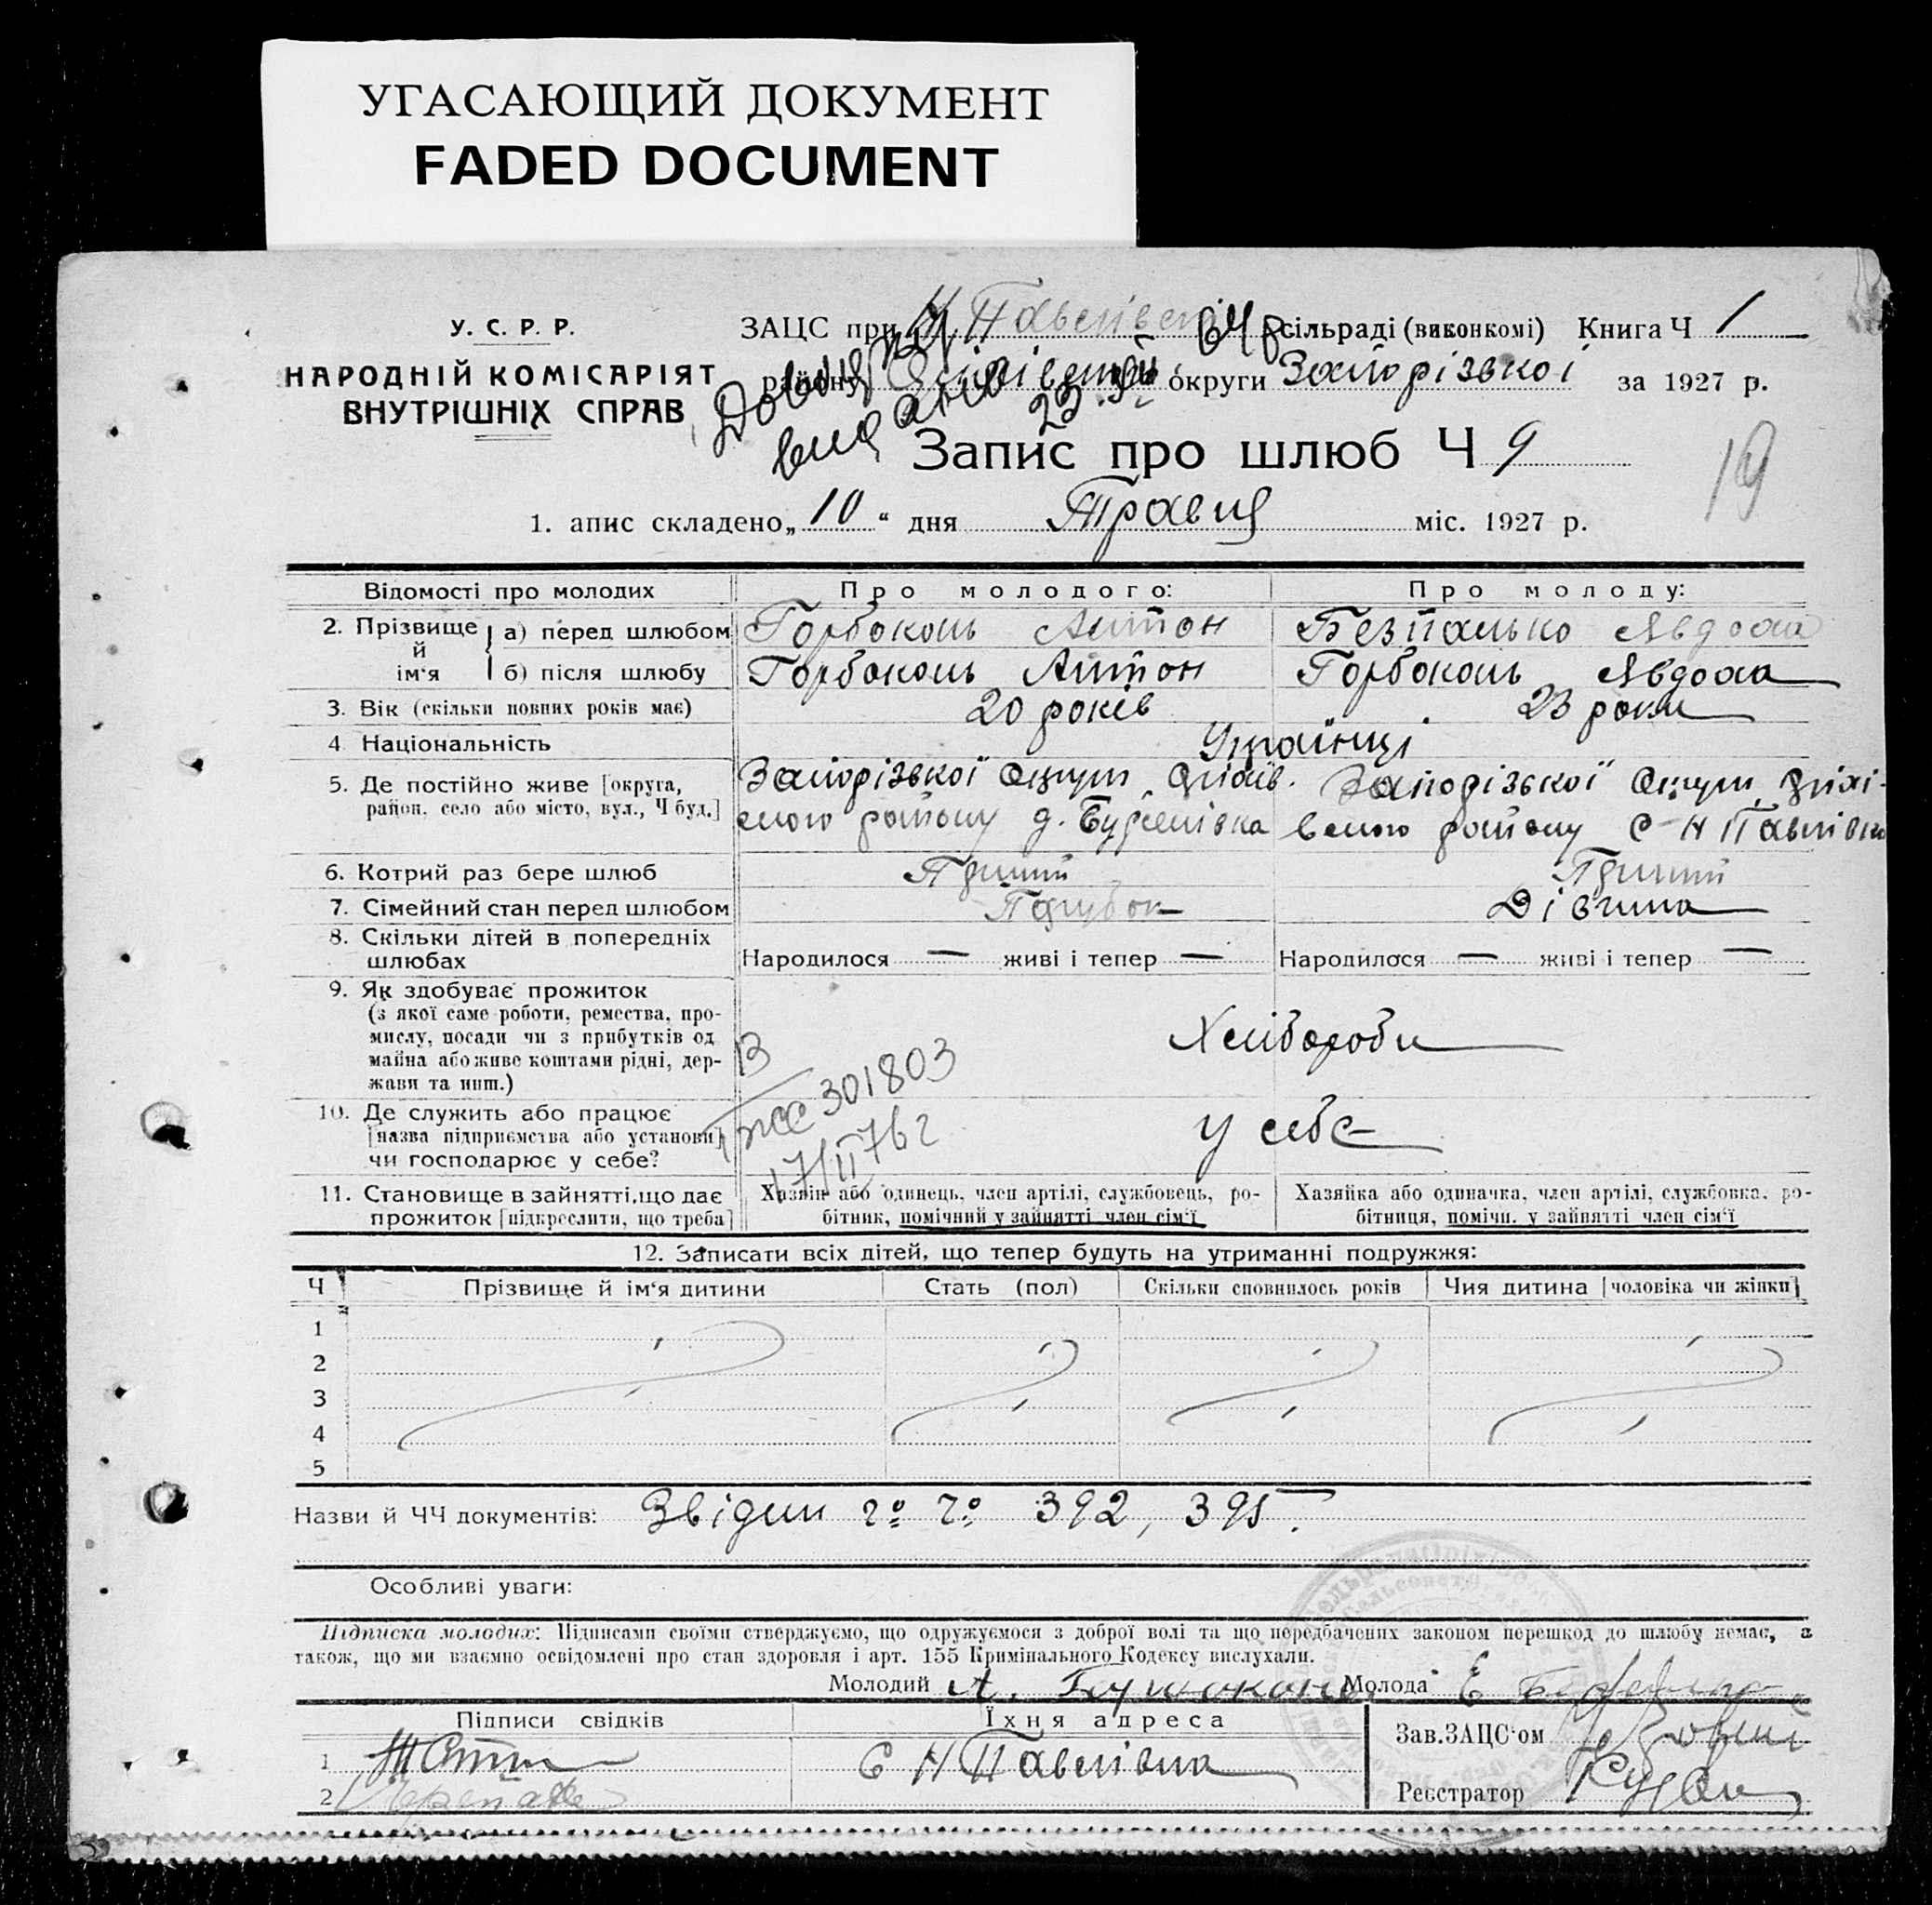 УГАСАЮЩИЙ ДОКУМЕНТ
FADED DOCUMENT
У. С. Р. Р.
НАРОДНІЙ КОМІСАРІЯТ
ВНУТРІШНІХ СПРАВ
ЗАЦС при Н Павлівській сільраді (виконкомі) Книга Ч 1
району округи Запорізької за 1927 р.
Запис про шлюб Ч 9
19
1. апис складено „10“ дня Травця міс. 1927 р.
Відомості про молодих Про молодого: Про молоду:
2. Прізвище й ім‘я а) перед шлюбом Горбоконь Антон Безпалько Явдоха
б) після шлюбу Горбоконь Антон Горбоконь Явдоха
3. Вік (скільки повних років має) 20 років 23 роки
4 Національність Українці
5. Де постійно живе [округа, район, село або місто, вул., Ч буд.] Запорізької Округи
ського району Запорізької Округи
вського району С Н Павлівка
6. Котрий раз бере шлюб Перший Перший
7. Сімейний стан перед шлюбом Парубок Дівчина
8. Скільки дітей в попередніх шлюбах Народилося — живі і тепер — Народилося — живі і тепер —
9. Як здобуває прожиток
(з якої саме роботи, ремества, про-
мислу, посади чи з прибутків од
майна або живе коштами рідні, дер-
жави та инш.)
Хлібороби
301803
10. Де служить або працює
[назва підприємства або установи]
чи господарює у себе?
у себе
17/II 76 г
11. Становище в зайнятті, що дає
прожиток [підкреслити, що треба]
Хазяїн або одинець, член артілі, службовець, ро-
бітник, помічний у зайнятті член сім‘ї
Хазяйка або одиначка, член артілі, службовка, ро-
бітниця, помічн. у зайнятті член сім‘ї
12. Записати всіх дітей, що тепер будуть на утриманні подружжя:
Ч Прізвище й ім‘я дитини Стать (пол) Скільки сповнилось років Чия дитина [чоловіка чи жінки]
1
2
3
4
5
Назви й ЧЧ документів: 392, 395.
Особливі уваги:
Підписка молодих: Підписами своїми стверджуємо, що одружуємося з доброї волі та що передбачених законом перешкод до шлюбу немає, а
також, що ми взаємно освідомлені про стан здоровля і арт. 155 Кримінального Кодексу вислухали.
Молодий А. Молода Е
Підписи свідків Їхня адреса Зав.ЗАЦС‘ом
1 С Н Павлівка
2
Реєстратор